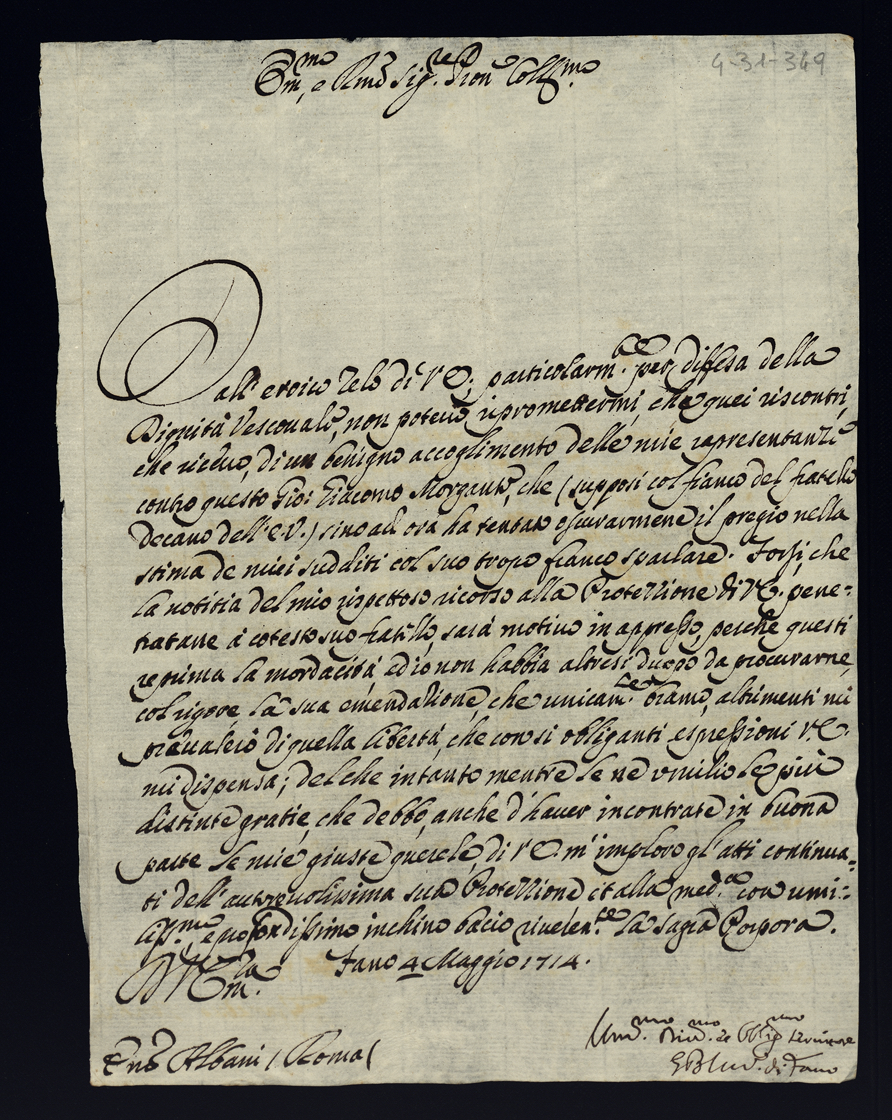 4-31-349
Em.mo, e Rmo Sig.re Pron Coll.mo
Dall'eroico Zelo di V.E. particolarm.te per diffesa della
Dignità Vescovale, non potevo ripromettermi, che quei riscontri,
che ricevo, di un benigno accoglimento delle mie rapresentanze
contro questo Gio: Giacomo Morganti, che (supposi col fianco del fratello
Decano dell'E.V.) sino ad ora ha tentato oscurarmene il pregio nella
stima de miei sudditi col suo tropo franco sparlare. Forsi, che
la notitia del mio rispettoso ricorso alla Protettione di V.E. pene=
tratane à cotesto suo fratello, sarà motivo in appresso, perche questi
reprima la mordacità, ed io non habbia altresì duopo da procurarne,
col rigore la sua emendatione, che unicam.te bramo, altrimenti mi
prevalerò di quella libertà, che con si obliganti espressioni V.E.
mi dispensa; del che intanto mentre le ne umilio le più
distinte gratie, che debbo, anche d'haver incontrate in buona
parte le mie giuste querele, di V.E. m'imploro gl'atti continua=
ti dell'autorevolissima sua Protettione et alla med.ma con umi=
liss.mo, e profondissimo inchino bacio rivelen.te la sagra Porpora.
Di V. Em.za Fano 4 Maggio 1714.
Um.mo Div.mo et Obblig.mo Servitore
Vesc. di Fano
Em.o Albani (Roma(